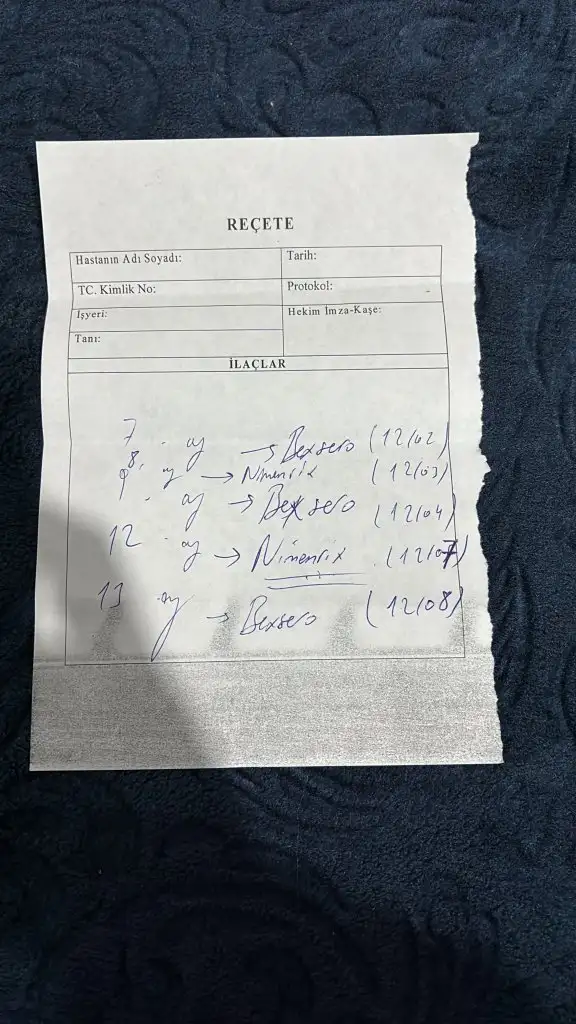 REÇETE
Hastanın Adı Soyadı:
Tarih:
TC. Kimlik No:
Protokol:
İşyeri:
Hekim İmza-Kaşe:
Tanı:
İLAÇLAR
7. ay → Bexsero (12/02)
8. ay → Nimenrix (12/03)
9. ay → Bexsero (12/04)
12. ay → Nimenrix (12/07)
13. ay → Bexsero (12/08)